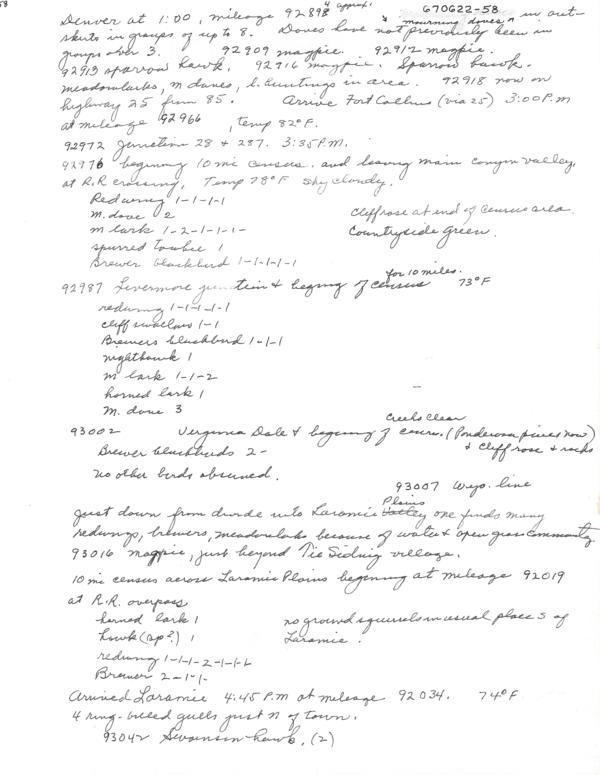 58
670622-58
Denver at 1:00, mileage 92898 approx. in out-
skirts in groups of up to 8. Doves have not previously been in
mourning doves
groups over 3. 92909 magpie. 92912 magpie.
92913 sparrow hawk. 92916 magpie. Sparrow hawk.
meadowlarks, m doves, l. buntings in area. 92918 now on
highway 25 from 85. Arrive Fort Collins (via 25) 3:00 P.m
at mileage 92966, temp 82°F.
92972 Junction 28 + 287. 3:35 P.M.
92976 beginning 10 mi census. and leaving main valley,
at R.R crossing, Temp 78°F Sky cloudy.
Redwing 1-1-1-1
M. dove 2 Cliffrose at end of census area.
m lark 1-2-1-1-1- Countryside Green.
spurred towhee 1
Brewer blackbird 1-1-1-1-1
for 10 miles.
92987 Livermore junction & begining of census 73°F
redwing 1-1-1-1-1
cliff swallows 1-1
Brewers blackbird 1-1-1
nighthawk 1
m lark 1-1-2
horned lark 1
M. dove 3
Creeks clear
93002 Virginia Dale & begining of census. (Ponderosa pines now)
& Cliff rose & rocks
Brewer blackbirds 2-
no other birds observed.
93007 Wyo. line
Just down from divide into Laramie Valley Plains one finds many
redwings, brewers, meadowlarks because of water & open grass community
93016 magpie, just beyond Tie Siding village.
10 mi census across Laramie Plains beginning at mileage 92019
at R.R. overpass
horned lark 1 no ground squirrels in usual places of
hawk (sp?) 1 Laramie.
redwing 1-1-1-2-1-1-6
Brewer 2-1-1-
Arrived Laramie 4:45 P.M at mileage 92034. 74°F
4 ring-billed gulls just N of town.
93042 Swainson hawk. (2)